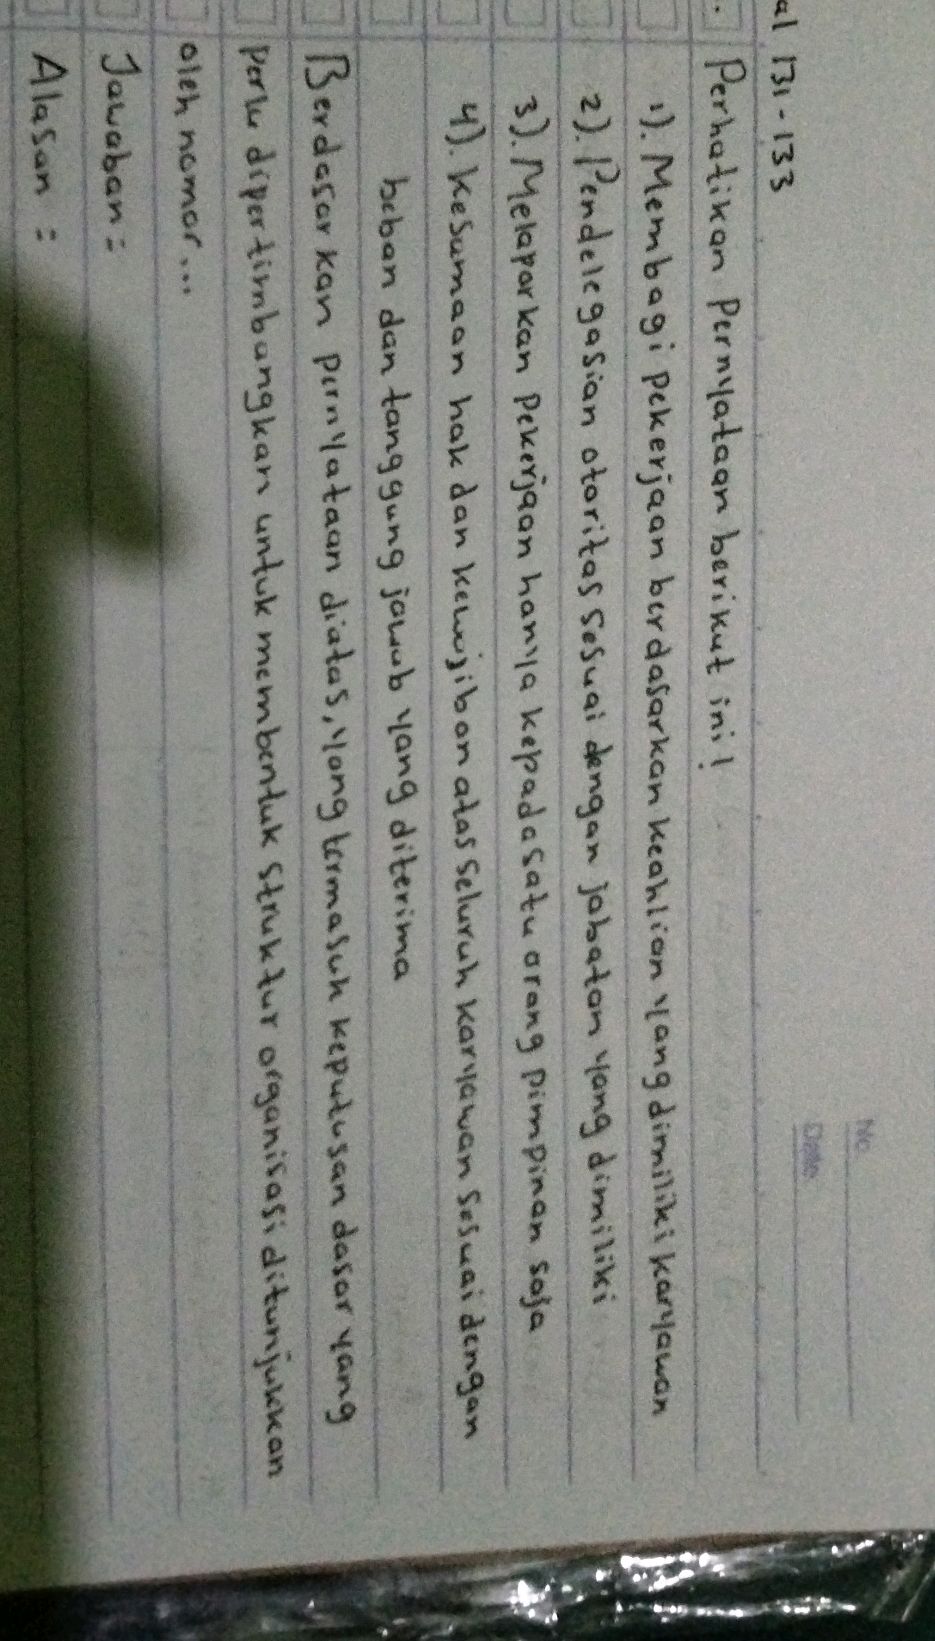 al 131-133
No.
Date
. Perhatikan Pernyataan berikut ini!
1). Membagi pekerjaan berdasarkan keahlian yang dimiliki karyawan
2). Pendelegasian otoritas sesuai dengan jabatan yang dimiliki
3). Melaporkan pekerjaan hanya kepada satu orang pimpinan saja
4). Kesamaan hak dan kewajiban atas seluruh karyawan sesuai dengan
beban dan tanggung jawab yang diterima
Berdasarkan pernyataan diatas, yang termasuk keputusan dasar yang
perlu dipertimbangkan untuk membentuk struktur organisasi ditunjukkan
oleh nomor...
Jawaban:
Alasan :